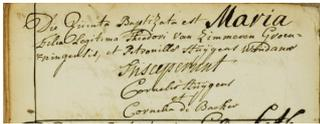 Die Quinta Baptizata est Maria
filia Legitima Theodori van Zimmeren Groen-
ningensis, et Petronilla Huÿgens
Susceperunt
Cornelis Huÿgens
et
Cornelia de Backer